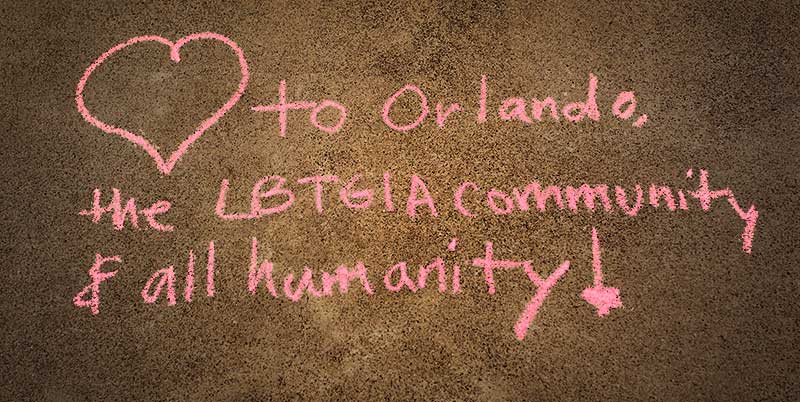 ♡ to Orlando,
the LBTGIA community
& all humanity!